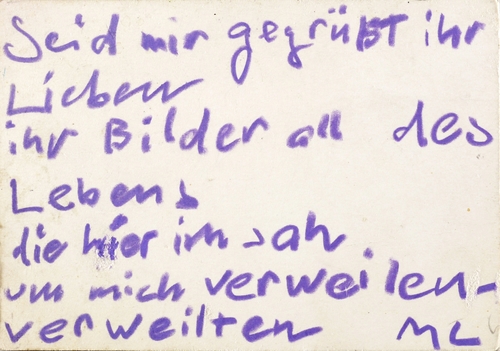 Seid mir gegrüßt ihr
Lieben
ihr Bilder all des
Lebens
die hier ich sah
um mich verweilen-
verweilten ML